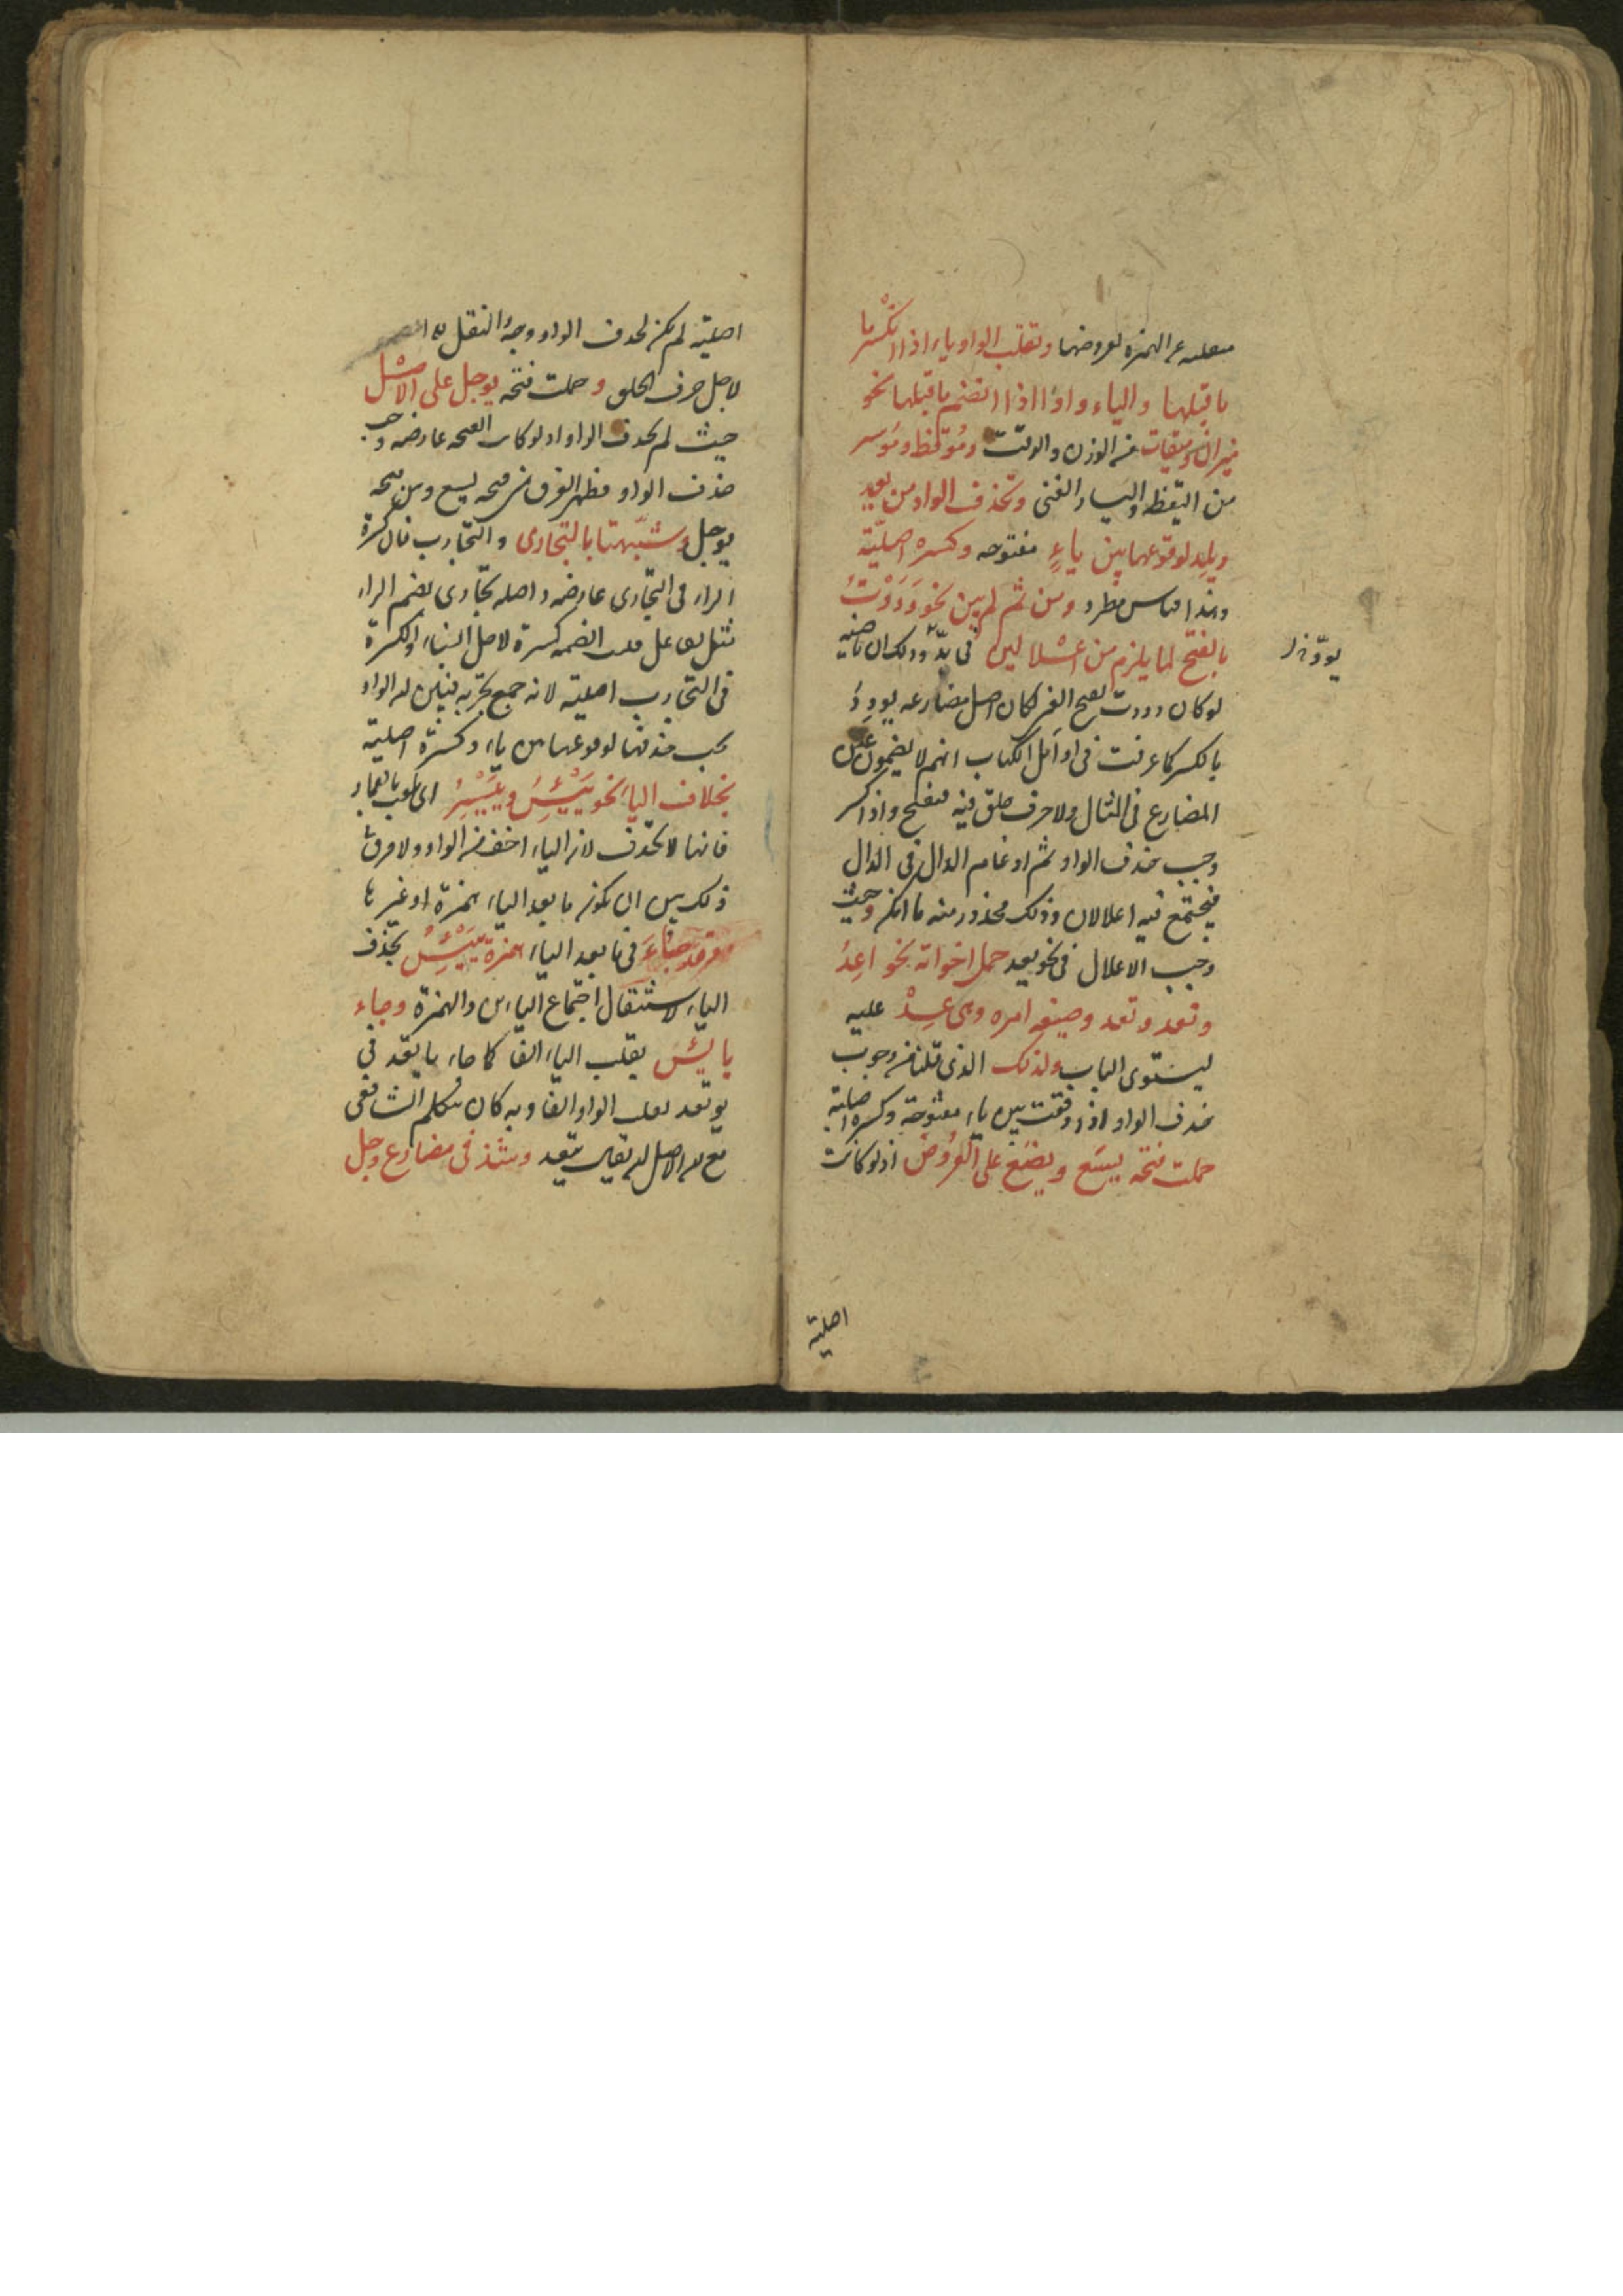 منقلبه عن الهمزة لعروضها وتقلب الواو ياء اذا انكسر ما
ما قبلها والياء واوا اذا انضم ما قبلها نحو
ميزان وميقات من الوزن والوقت وموقظ وموسر
من اليقظه واليسار الغنى وتحذف الواو من يعد
ويلد لوقوعها بين ياءٍ مفتوحه وكسره اصليّة
وهذا قياس مطرد ومن ثم لم يبن نحو وَدَدْتُ
بالفتح لما يلزم من اعلالين فى يدّ وذلك ان ماضيه
يودّ
لو كان وددت بفتح العين لكان اصل مضارعه يودِدُ
بالكسر كما عرفت فى اوائل الكتاب انهم لا يضمون عين
المضارع فى المثال ولا حرف حلق فيه فيفتح واذا كسر
وجب حذف الواو ثم ادغام الدال فى الدال
فيجتمع فيه اعلالان وذلك محذور منه ما امكن وحيث
وجب الاعلال فى نحو يعد حمل اخواته نحو اعِدُ
وتعد ونعد وصيغه امره وهى عِدْ عليه
ليستوى الباب ولذلك الذى قلنا من وجوب
حذف الواو اذا وقعت بين ياء مفتوحة وكسره اصلية
حملت فتحه يسَع ويضَع على العُرُوض اذ لو كانت
اصلية
اصلية لم يكن لحذف الواو وجهٌ النقل
لاجل حرف الحلق و حملت فتحه يوجل على الاصل
حيث لم يحذف الواو اذ لو كانت الفتحه عارضه وجب
حذف الواو فظهر الفرق بين فتحه يسع وبين فتحه
يوجل و شبّهتا بالتجارى والتجارب فان كسرة
الراء فى التجارى عارضه واصله تجارى بضم الراء
فقلبت الضمه كسرة لاجل الياء والكسرة
فى التجارب اصلية لانه جمع تجربه فتبين ان الواو
يجب حذفها لوقوعها بين ياء وكسرة اصلية
بخلاف الياء نحو يَيْئِسُ ويَيْسِرُ اى يلعب بالقمار
فانها لا تحذف لان الياء اخف من الواو ولا فرق
ذلك بين ان يكون ما بعد الياء همزة او غيرها
وقد جَاءَ فى ما بعد الياء همزة يَئِسُ بحذف
الياء لاستثقال اجتماع الياءين والهمزة وجاء
يائسُ بقلب الياء الفا كما جاء ياتعد فى
يوتعد بقلب الواو الفا وبه كان يتكلم الشافعى
مع ان الاصل ان يقال يتعد وشذ فى مضارع وجل